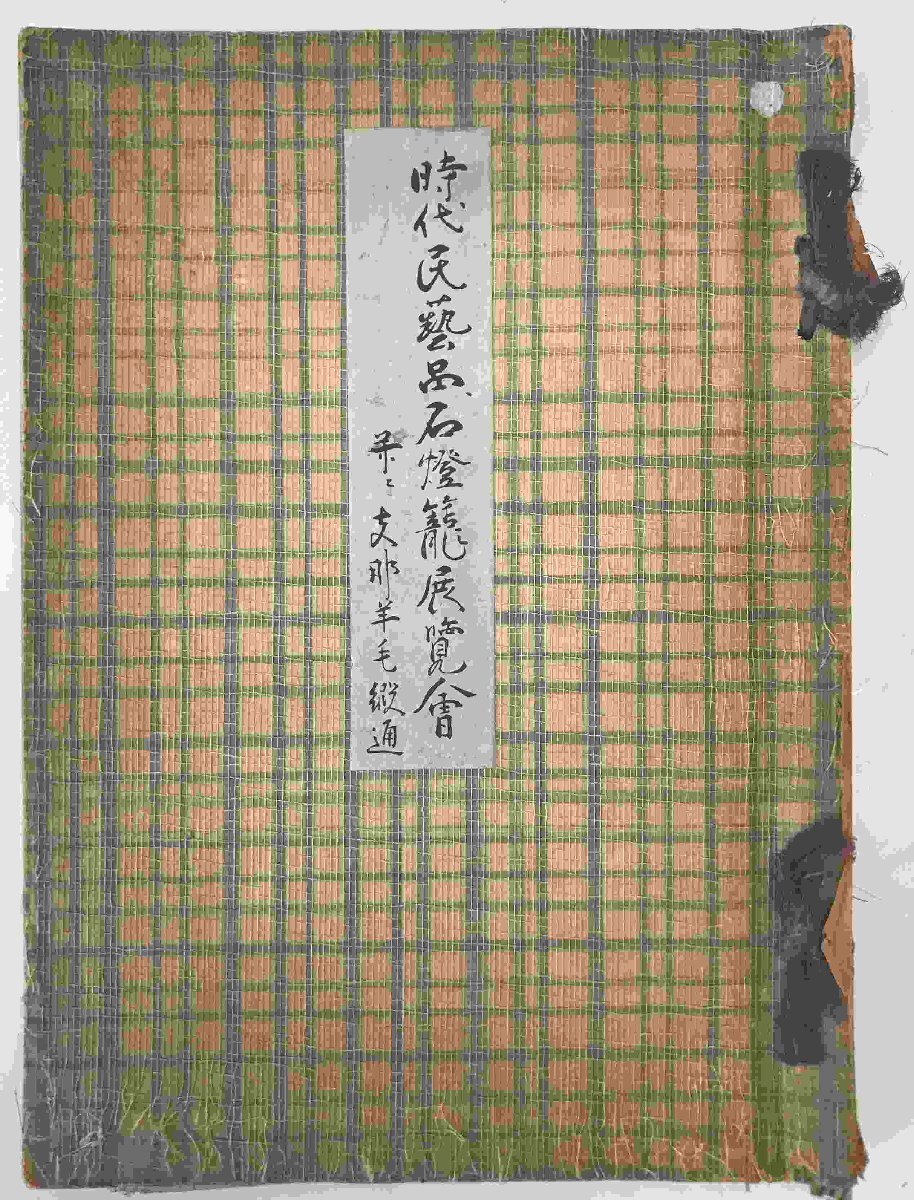 時代民藝品石燈籠展覽會
並ニ支那羊毛緞通